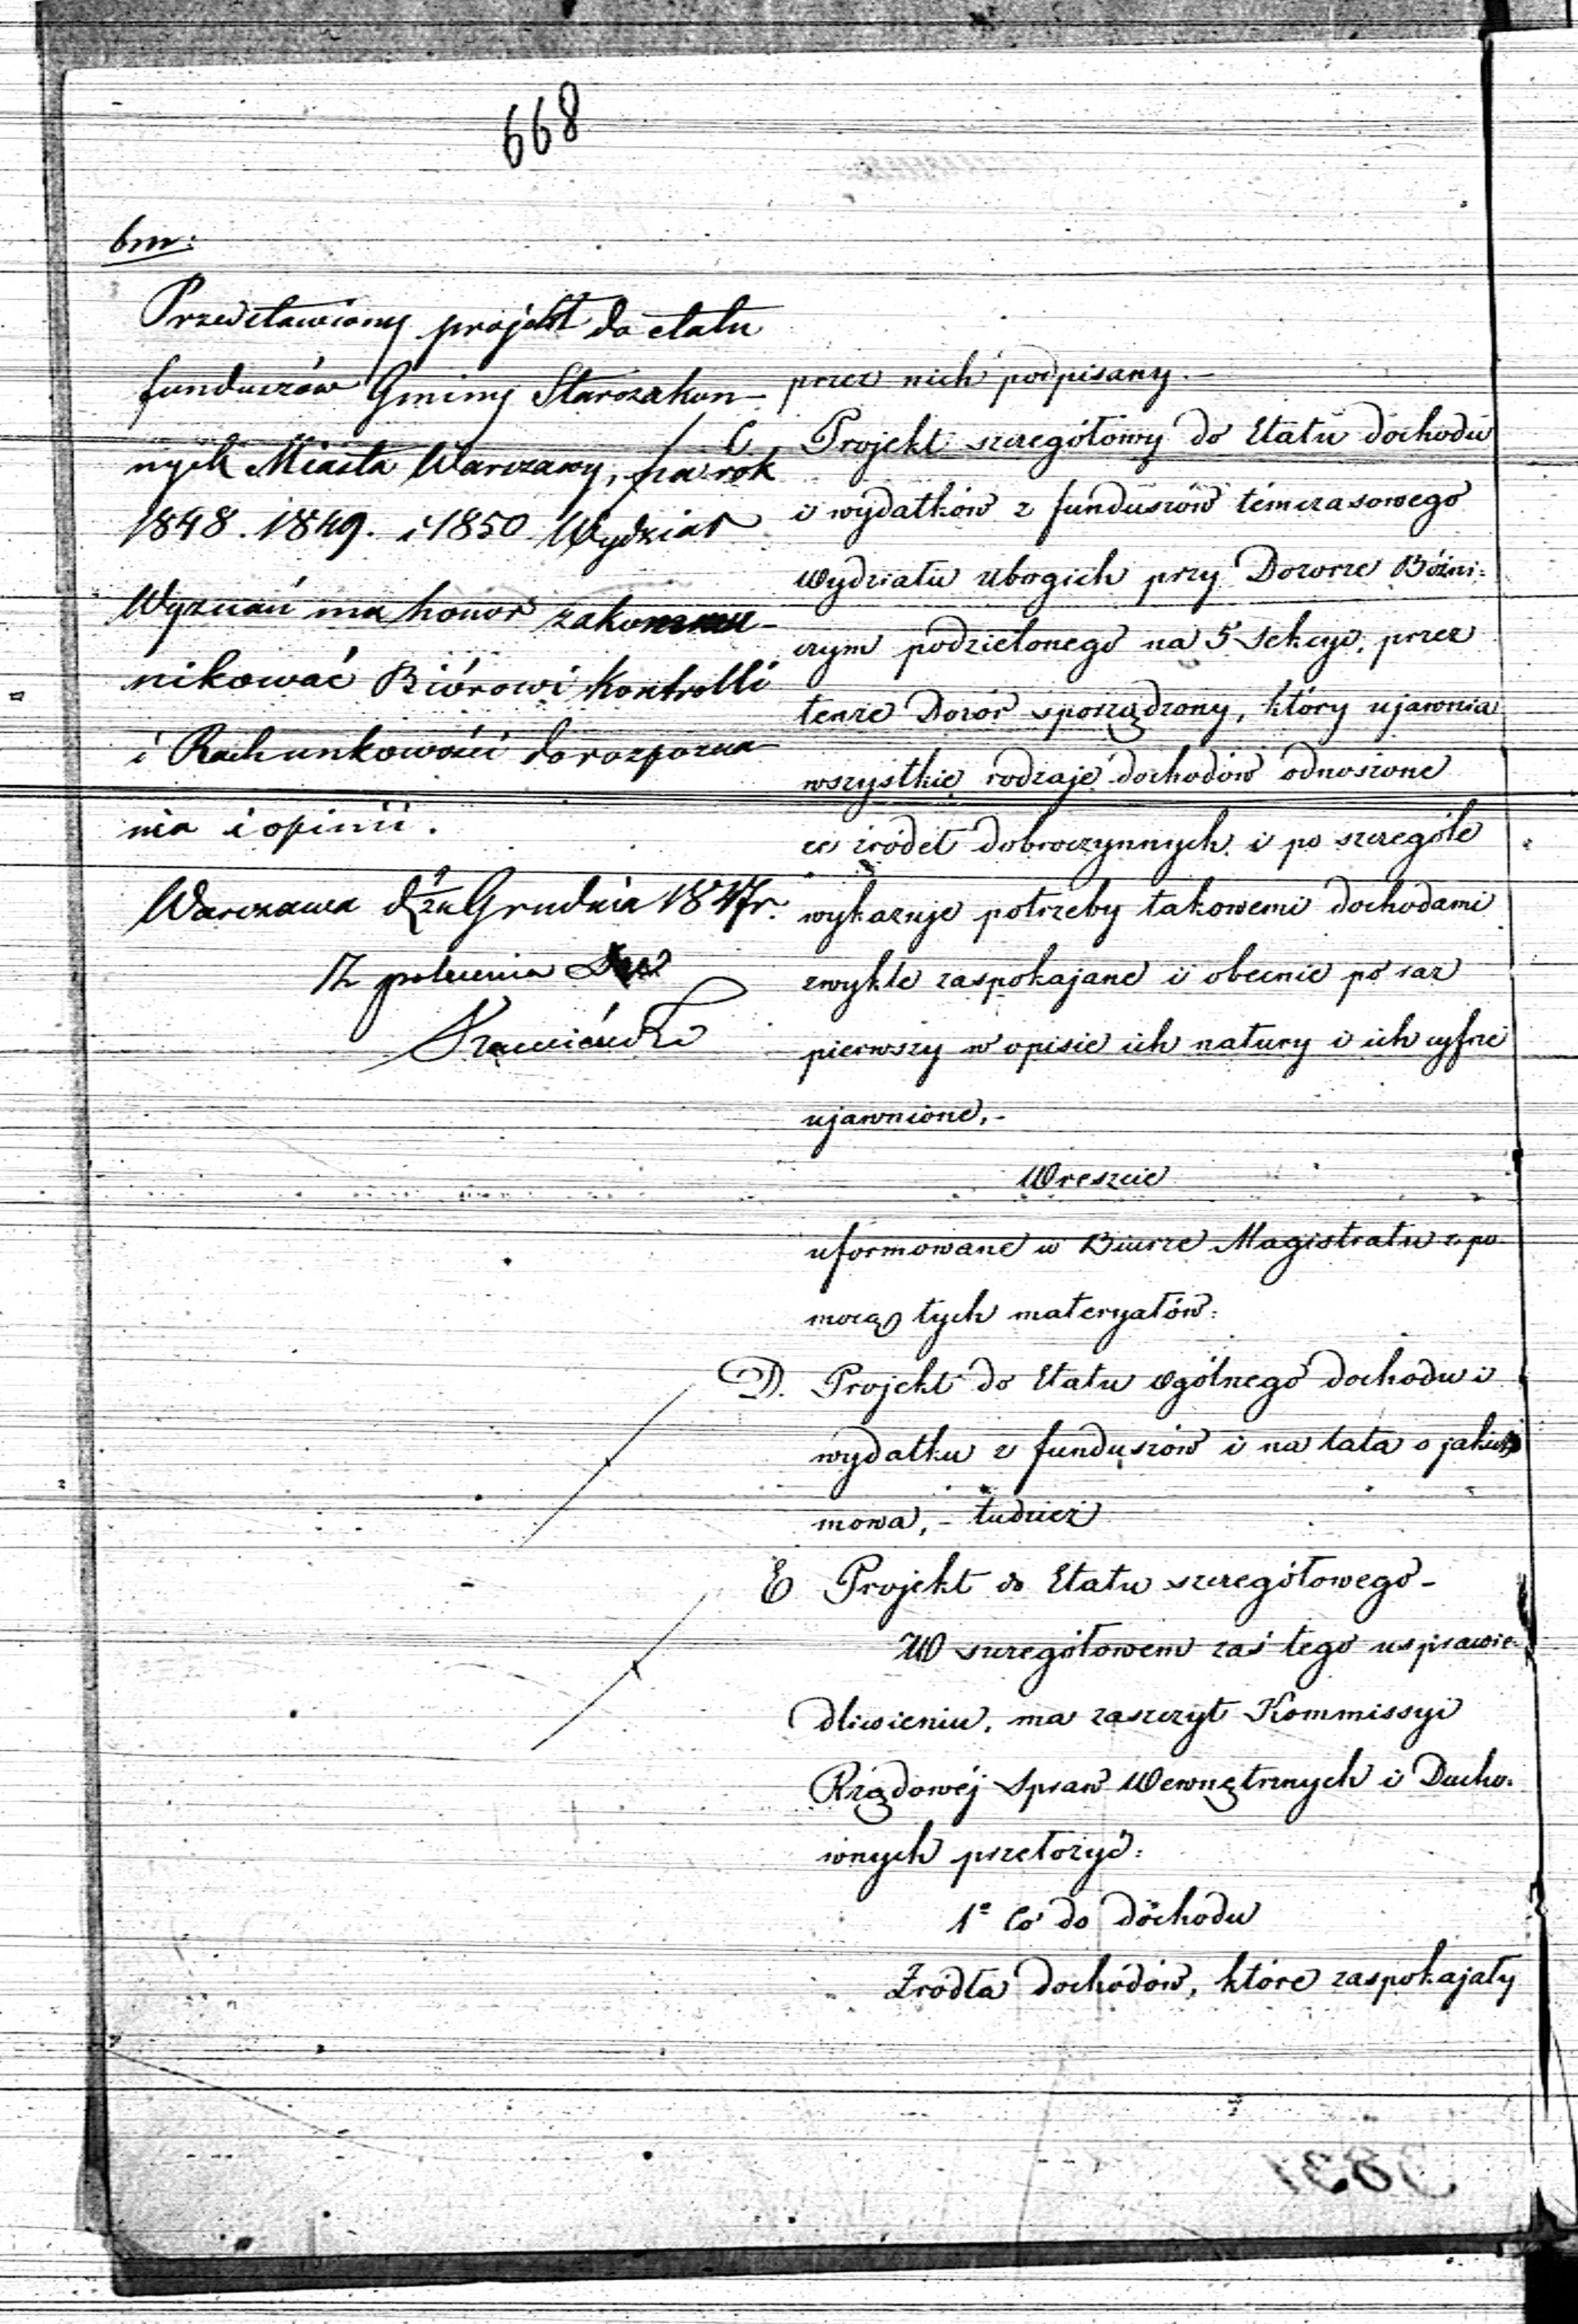 668
bm:
Przedstawiony projekt do etatu
funduszów Gminy Starozakon-
nych Miasta Warszawy, na rok
1848. 1849. i 1850 Wydział
Wyznań ma honor zakommu-
nikować Biórowi Kontrolli
i Rachunkowości do rozpozna-
nia i opinii.
Warszawa d. Grudnia 1847 r.
Z polecenia
przez nich podpisany.-
C Projekt szczegółowy do Etatu dochodu
i wydatków z funduszów témczasowego
wydziału ubogich przy Dozorze Bóżni-
czym podzielonego na 5 Sekcyi, przez
tenże Dozór sporządzony, który ujawnia
wszystkie rodzaje dochodów odnoszone
ze źródeł dobroczynnych i po szczególe
wykazuje potrzeby takowemi dochodami
zwykle zaspokajane i obecnie po raz
pierwszy w opisie ich natury i ich cyfrze
ujawnione.-
Wreszcie
uformowane w Biurze Magistratu z po-
mocą tych materyałów:
D. Projekt do Etatu ogólnego dochodu i
wydatku z funduszów i na lata o jakich
mowa, - tudzież
E Projekt do Etatu szczegółowego-
W szczegółowem zaś tego usprawie-
dliwieniu, ma zaszczyt Kommissyi
Rządowéj Spraw Wewnętrznych i Ducho-
wnych przełożyć:
1º Co do dochodu
Źródła dochodów, które zaspokajały